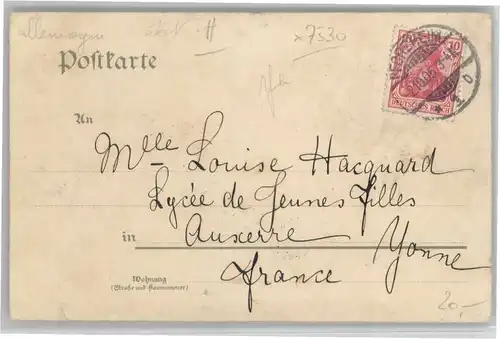 allemagne
x7530
Postkarte
10
DEUTSCHES REICH
An
Mlle Louise Hacquard
Lycée de Jeunes filles
in Auxerre Yonne
France
Wohnung
(Straße und Hausnummer)
20.-